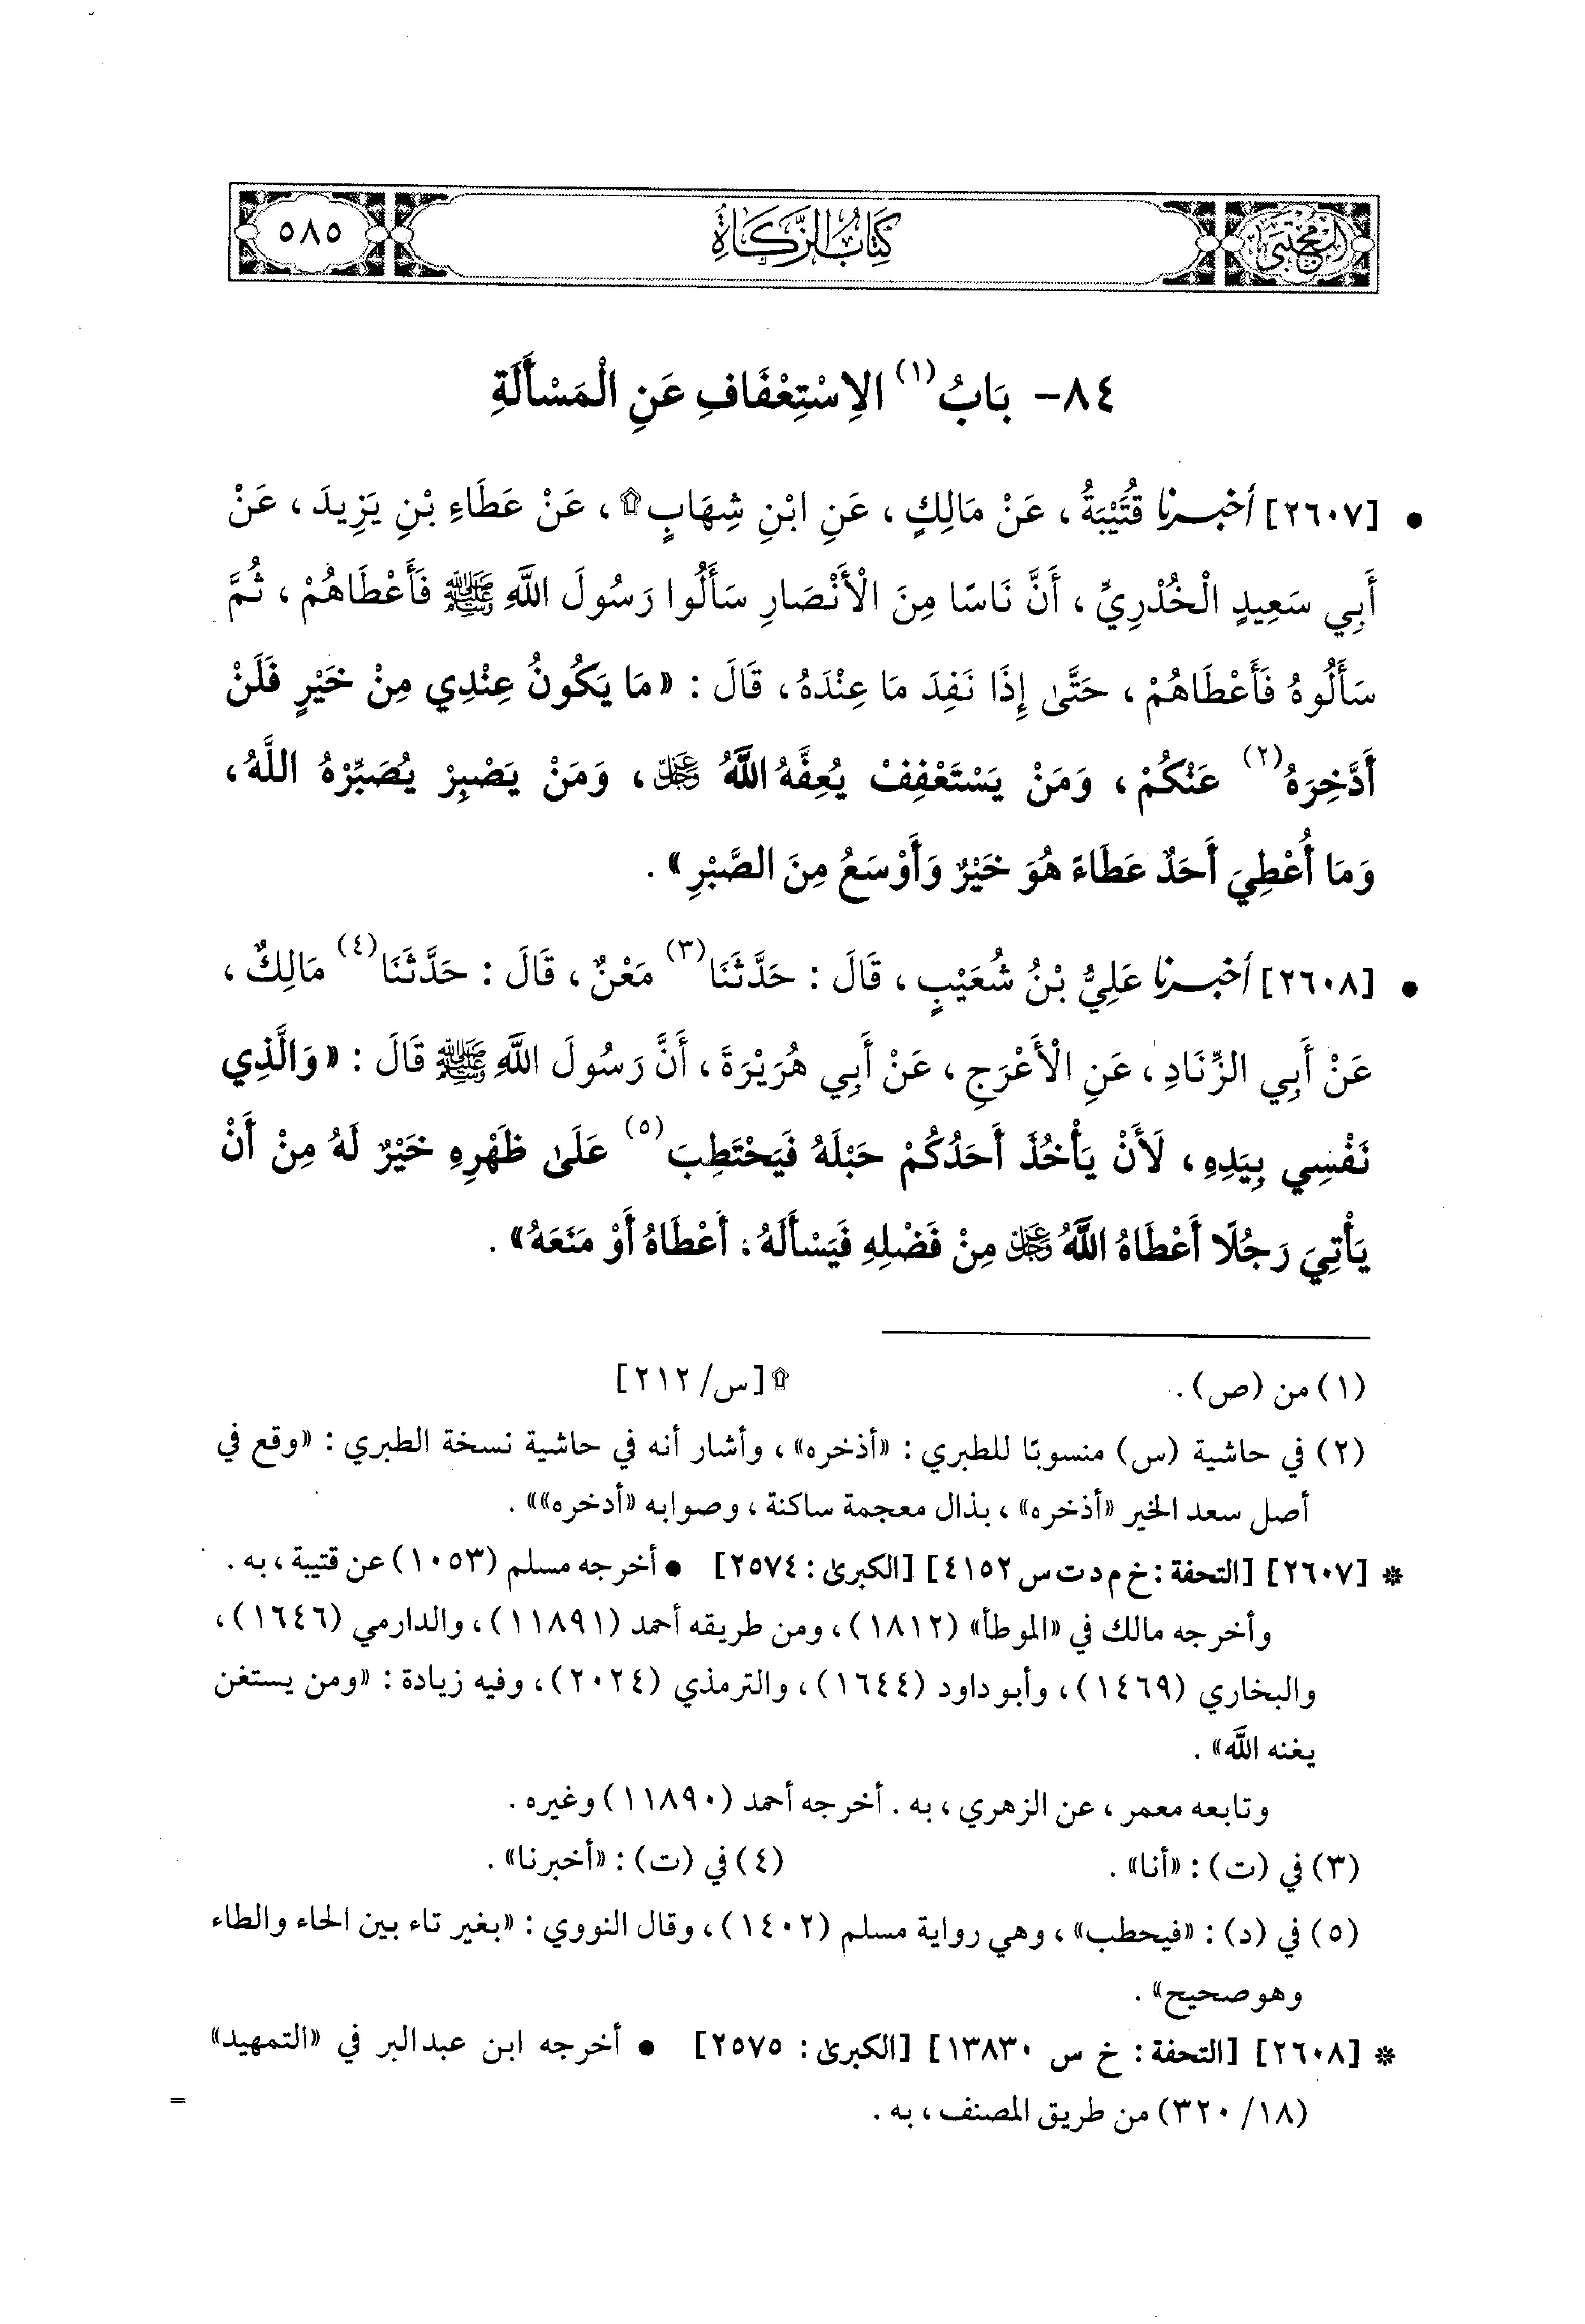 المجتبى
كتاب الزكاة
٥٨٥
٨٤- بَابُ(١) الِاسْتِعْفَافِ عَنِ الْمَسْأَلَةِ
• [٢٦٠٧] أخبرنا قُتَيْبَةُ، عَنْ مَالِكٍ، عَنِ ابْنِ شِهَابٍ۩، عَنْ عَطَاءِ بْنِ يَزِيدَ، عَنْ
أَبِي سَعِيدٍ الْخُدْرِيِّ، أَنَّ نَاسًا مِنَ الْأَنْصَارِ سَأَلُوا رَسُولَ اللَّهِ ﷺ فَأَعْطَاهُمْ، ثُمَّ
سَأَلُوهُ فَأَعْطَاهُمْ، حَتَّى إِذَا نَفِدَ مَا عِنْدَهُ، قَالَ: «مَا يَكُونُ عِنْدِي مِنْ خَيْرٍ فَلَنْ
أَدَّخِرَهُ(٢) عَنْكُمْ، وَمَنْ يَسْتَعْفِفْ يُعِفَّهُ اللَّهُ عَزَّ وَجَلَّ، وَمَنْ يَصْبِرْ يُصَبِّرْهُ اللَّهُ،
وَمَا أُعْطِيَ أَحَدٌ عَطَاءً هُوَ خَيْرٌ وَأَوْسَعُ مِنَ الصَّبْرِ».
• [٢٦٠٨] أخبرنا عَلِيُّ بْنُ شُعَيْبٍ، قَالَ: حَدَّثَنَا(٣) مَعْنٌ، قَالَ: حَدَّثَنَا(٤) مَالِكٌ،
عَنْ أَبِي الزِّنَادِ، عَنِ الْأَعْرَجِ، عَنْ أَبِي هُرَيْرَةَ، أَنَّ رَسُولَ اللَّهِ ﷺ قَالَ: «وَالَّذِي
نَفْسِي بِيَدِهِ، لَأَنْ يَأْخُذَ أَحَدُكُمْ حَبْلَهُ فَيَحْتَطِبَ(٥) عَلَى ظَهْرِهِ خَيْرٌ لَهُ مِنْ أَنْ
يَأْتِيَ رَجُلًا أَعْطَاهُ اللَّهُ عَزَّ وَجَلَّ مِنْ فَضْلِهِ فَيَسْأَلَهُ، أَعْطَاهُ أَوْ مَنَعَهُ».
(١) من (ص). ۩ [س/ ٢١٢]
(٢) في حاشية (س) منسوبًا للطبري: «أذخره»، وأشار أنه في حاشية نسخة الطبري: «وقع في
أصل سعد الخير «أذخره»، بذال معجمة ساكنة، وصوابه «أدخره»».
* [٢٦٠٧] [التحفة: خ م د ت س ٤١٥٢] [الكبرى: ٢٥٧٤] • أخرجه مسلم (١٠٥٣) عن قتيبة، به.
وأخرجه مالك في «الموطأ» (١٨١٢)، ومن طريقه أحمد (١١٨٩١)، والدارمي (١٦٤٦)،
والبخاري (١٤٦٩)، وأبو داود (١٦٤٤)، والترمذي (٢٠٢٤)، وفيه زيادة: «ومن يستغن
يغنه الله».
وتابعه معمر، عن الزهري، به. أخرجه أحمد (١١٨٩٠) وغيره.
(٣) في (ت): «أنا». (٤) في (ت): «أخبرنا».
(٥) في (د): «فيحطب»، وهي رواية مسلم (١٤٠٢)، وقال النووي: «بغير تاء بين الحاء والطاء
وهو صحيح».
* [٢٦٠٨] [التحفة: خ س ١٣٨٣٠] [الكبرى: ٢٥٧٥] • أخرجه ابن عبد البر في «التمهيد»
(١٨/ ٣٢٠) من طريق المصنف، به.
=